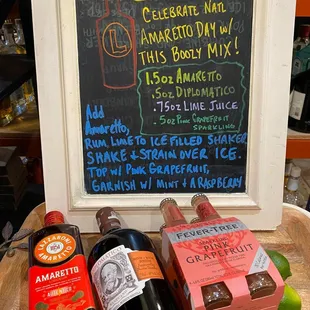 CELEBRATE NATL
AMARETTO DAY W/
THIS BOOZY MIX!
1.5oz AMARETTO
.5oz DIPLOMATICO
.75oz LIME JUICE
.5oz PINK GRAPEFRUIT
SPARKLING
Add
Amaretto,
RUM, LIME TO ICE FILLED SHAKER
SHAKE & STRAIN OVER ICE.
TOP W/ PINK GRAPEFRUIT,
GARNISH W/ MINT & A RASPBERRY
LAZZARONI
AMARETTO
FEVER-TREE
PINK
GRAPEFRUIT